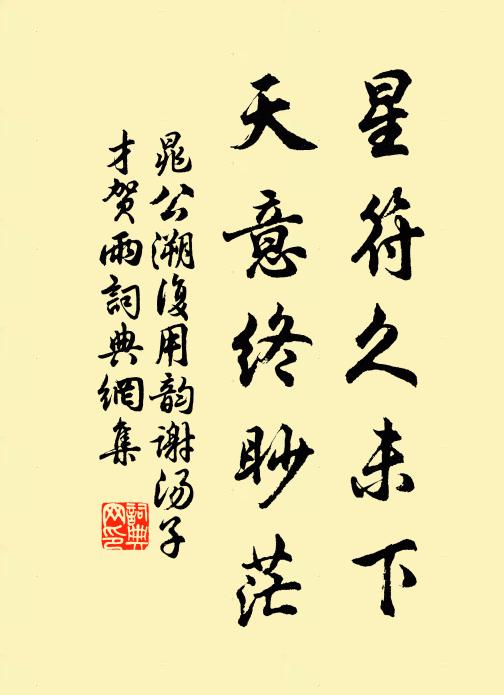 星符久未下
天意终眇茫
晁公溯復用韵谢汤子
才贺雨詞典網集
詞典网印